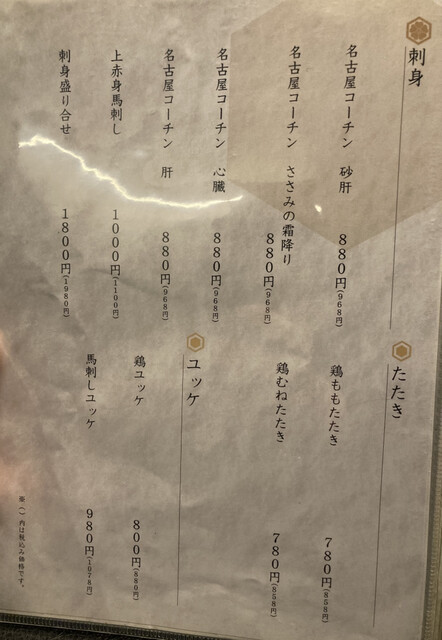 刺身
名古屋コーチン 砂肝 880円(968円)
名古屋コーチン ささみの霜降り 880円(968円)
名古屋コーチン 心臓 880円(968円)
名古屋コーチン 肝 880円(968円)
上赤身馬刺し 1000円(1100円)
刺身盛り合せ 1800円(1980円)
たたき
鶏ももたたき 780円(858円)
鶏むねたたき 780円(858円)
ユッケ
鶏ユッケ 800円(880円)
馬刺しユッケ 980円(1078円)
※()内は税込み価格です。